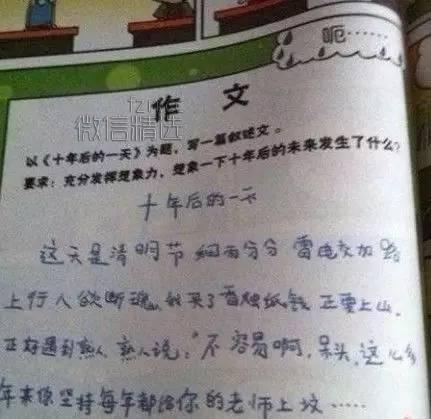 呃……
作 文
微信精选
以《十年后的一天》为题，写一篇叙述文。
要求：充分发挥想象力，想象一下十年后的未来发生了什么？
十年后的一天
这天是清明节 细雨分分 雷电交加 路
上行人欲断魂，我买了香烛纸钱 正要上山，
正好遇到熟人，熟人说："不容易啊，呆头，这么多
年来你坚持每年都给你的老师上坟……